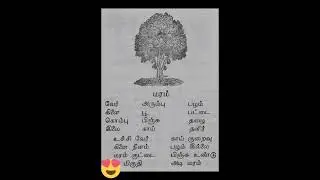 மரம்
வேர் அரும்பு பழம்
கிளை பூ பட்டை
கொம்பு பிஞ்சு தழை
இலை காய் தளிர்
உச்சி வேர் காய் குறைவு
கிளை நீளம் பழம் இல்லை
மரம் குட்டை பிஞ்சு உண்டு
மிகுதி அடி மரம்